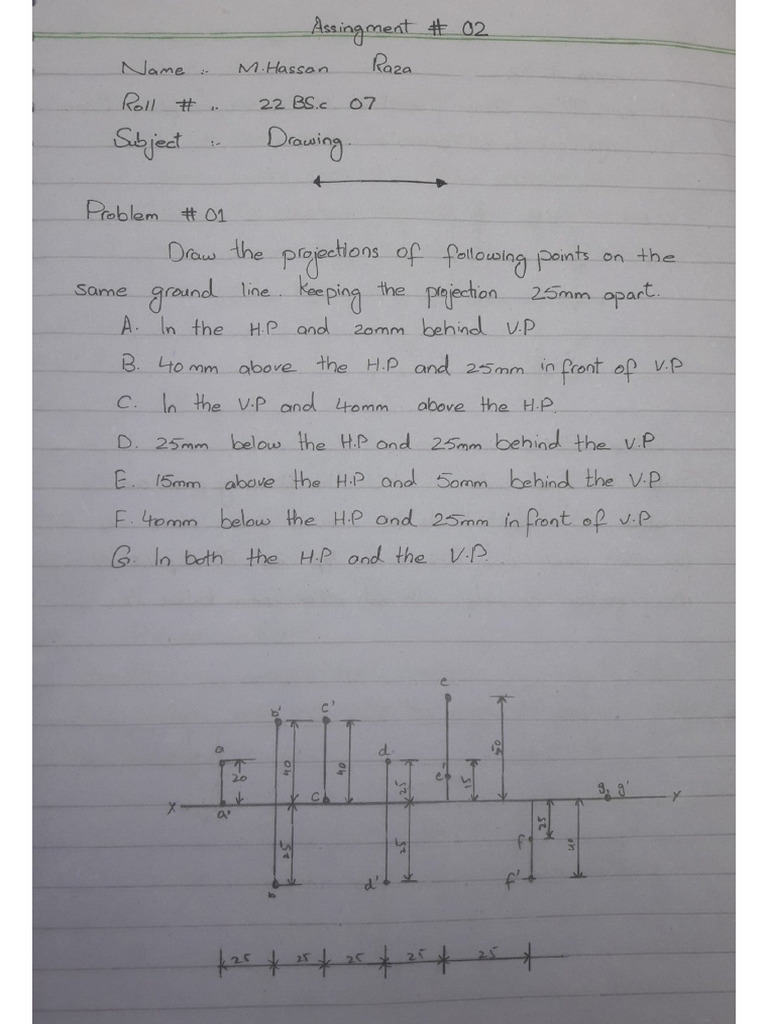 Assingment # 02
Name :- M.Hassan Raza
Roll # :. 22 BS.c 07
Subject :- Drawing.
Problem # 01
Draw the projections of following points on the
same ground line. Keeping the projection 25mm apart.
A. In the H.P and 20mm behind V.P
B. 40mm above the H.P and 25mm in front of V.P
C. In the V.P and 40mm above the H.P.
D. 25mm below the H.P and 25mm behind the V.P
E. 15mm above the H.P and 50mm behind the V.P
F. 40mm below the H.P and 25mm in front of V.P
G. In both the H.P and the V.P.
e
b' c'
a d
20 40 40 25 e' 15 50
X a' c g, g' Y
25 25 f 25 40
b d' f'
25 25 25 25 25